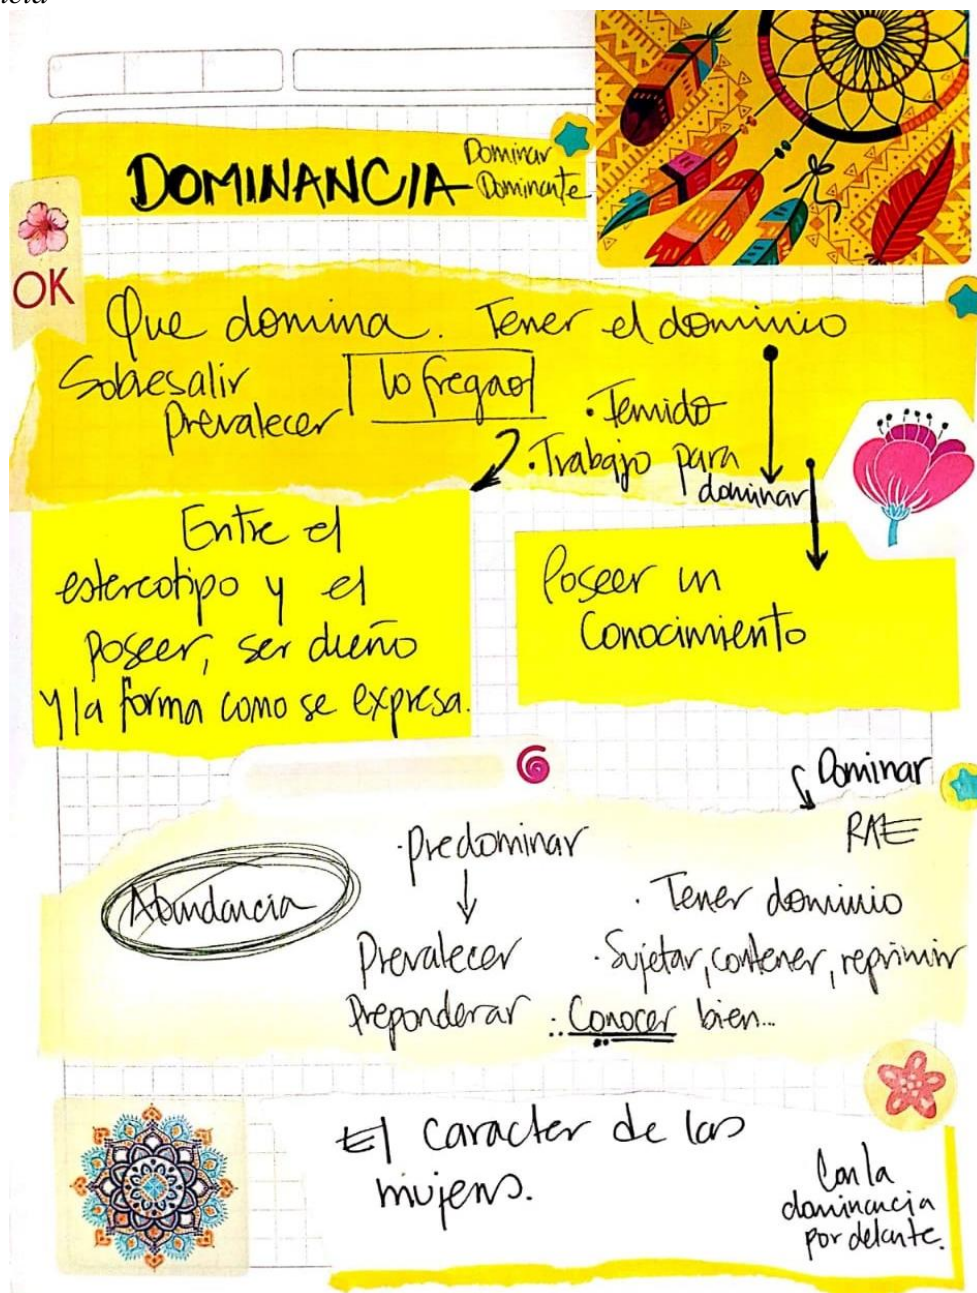 DOMINANCIA
Dominar
Dominante
OK
Que domina. Tener el dominio
Sobresalir
Prevalecer
lo fregao
• Temido
• Trabajo para
dominar
Entre el
estereotipo y el
poseer, ser dueño
y la forma como se expresa.
Poseer un
Conocimiento
Dominar
RAE
Abundancia
• Predominar
Prevalecer
Preponderar
• Tener dominio
• Sujetar, contener, reprimir
Conocer bien...
El caracter de las
mujeres.
Con la
dominancia
por delante.